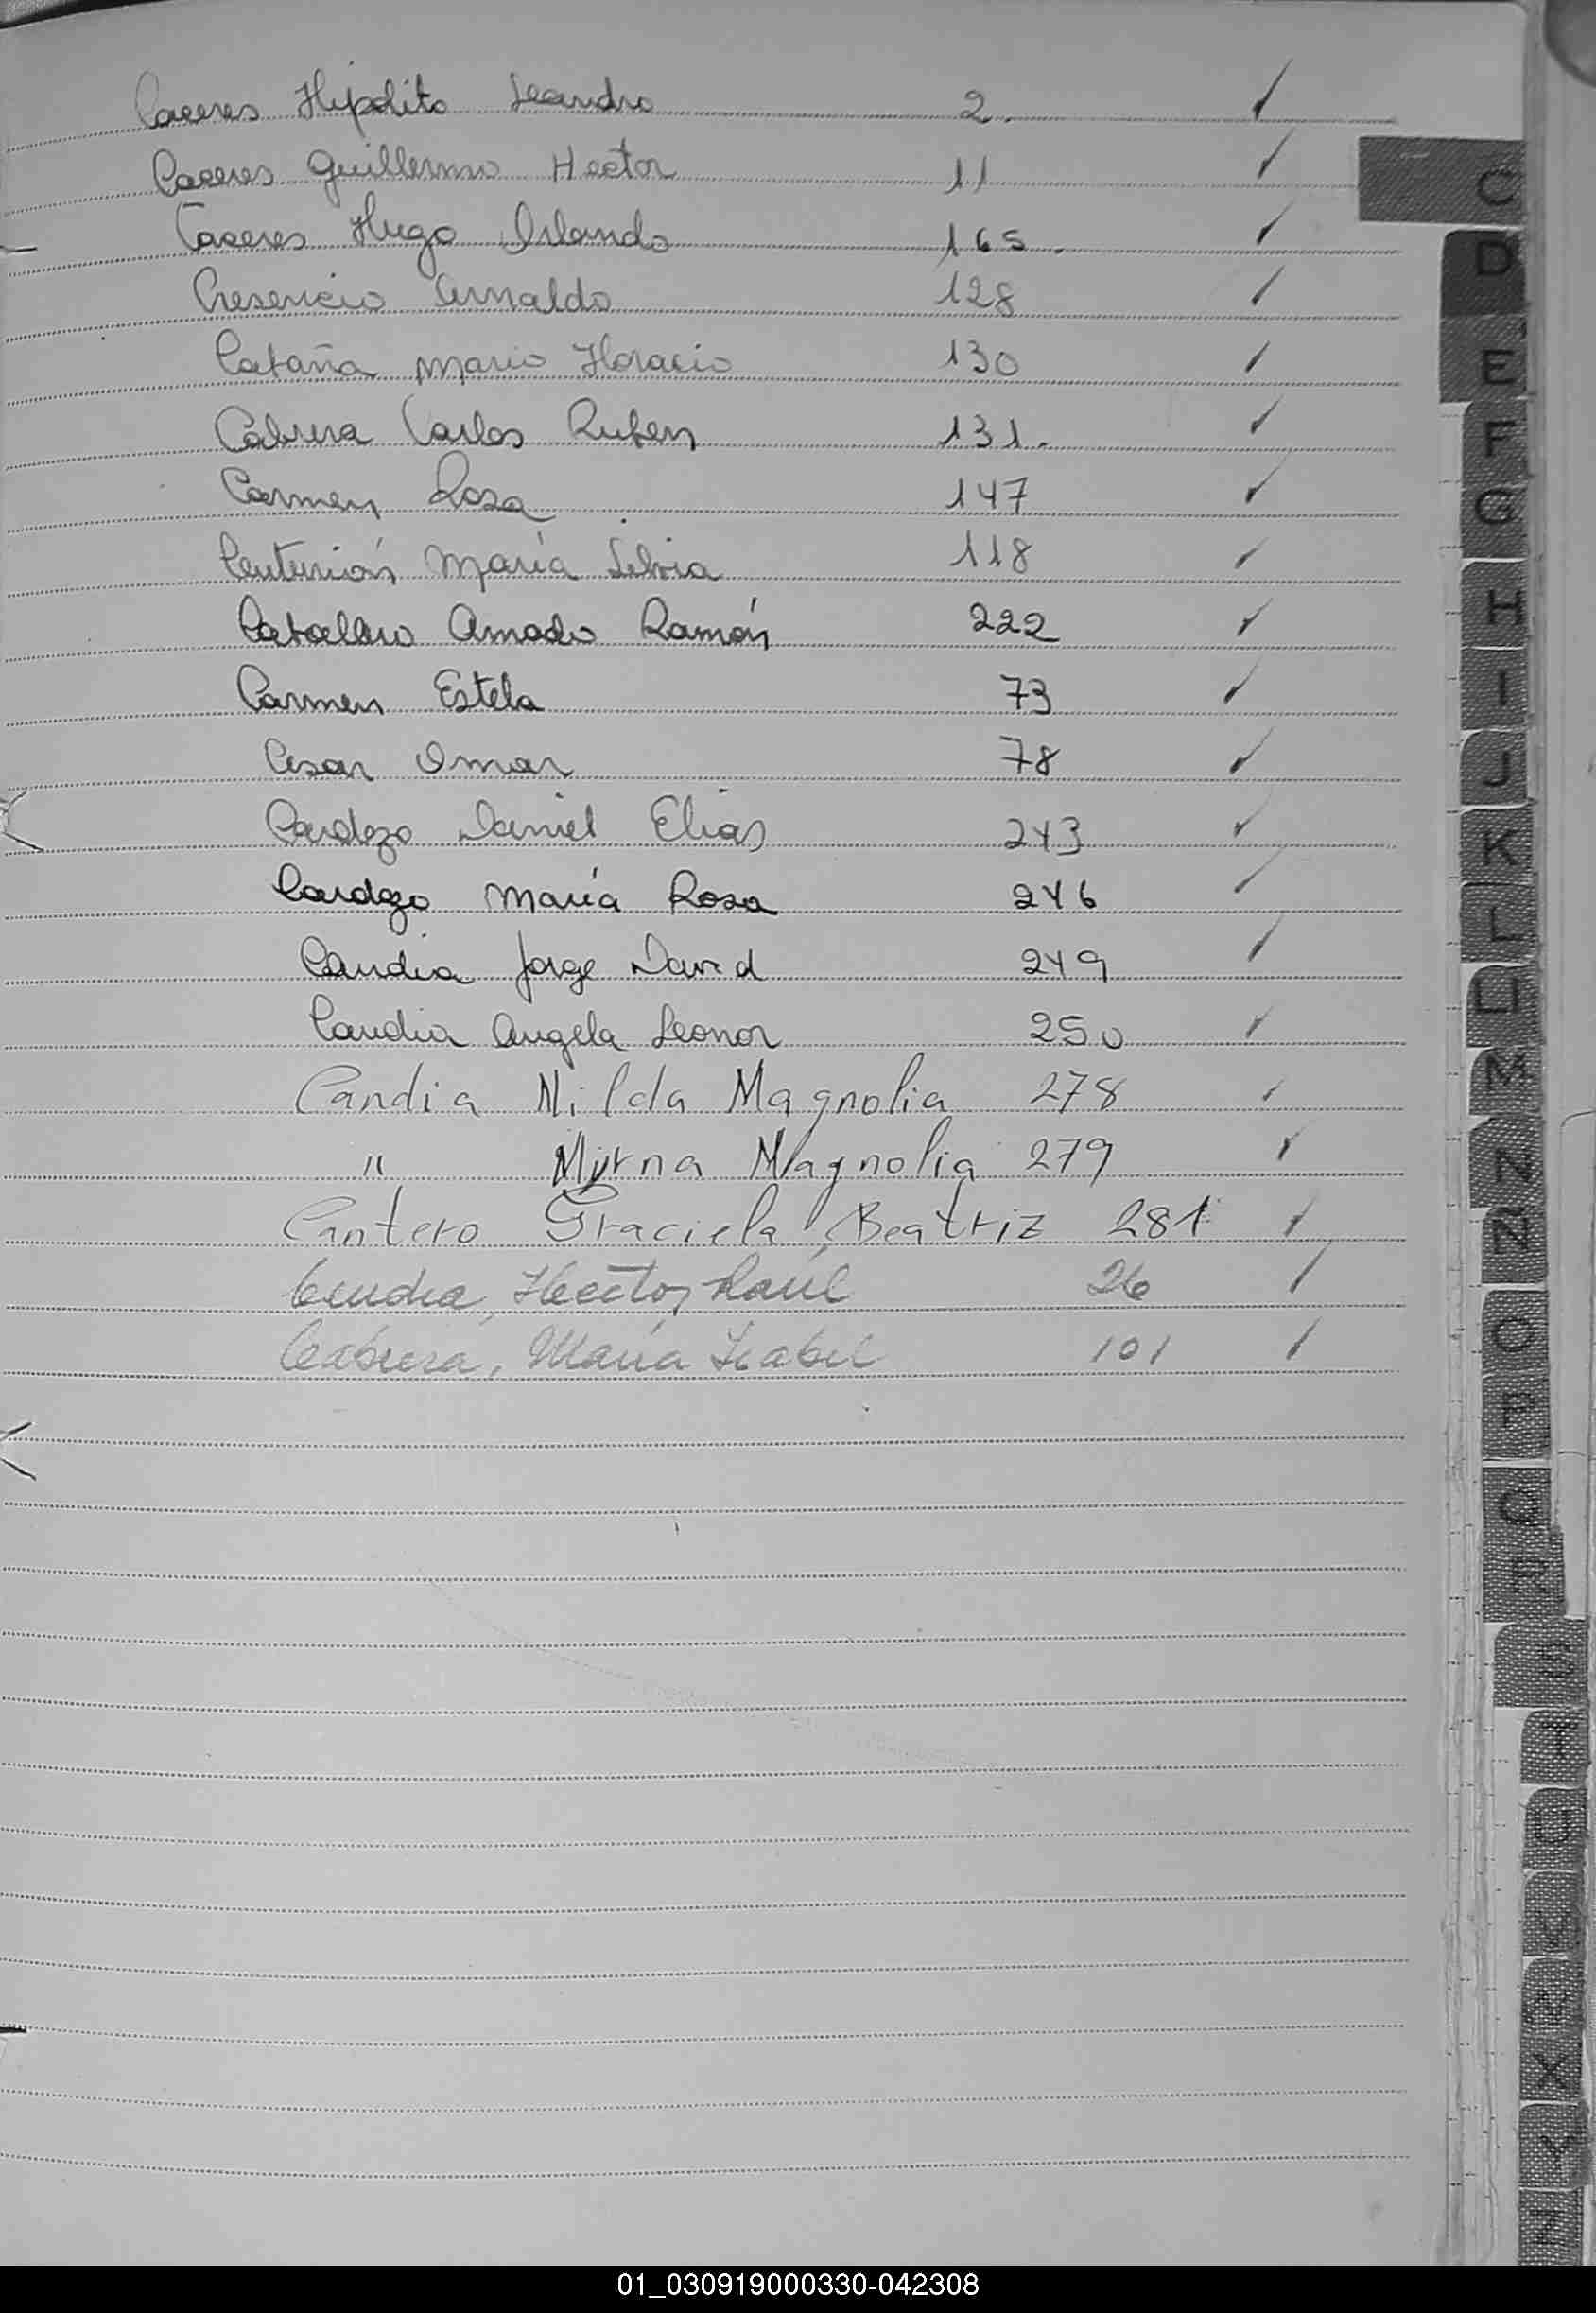 Caceres Hipolito Leandro 2. ✓
Caceres Guillermo Hector 11 ✓
Caceres Hugo Orlando 165. ✓
Cresencio Arnaldo 128 ✓
Cataña Mario Horacio 130 ✓
Cabrera Carlos Ruben 131. ✓
Carmen Rosa 147 ✓
Centurión María Silvia 118 ✓
Amado Ramón 222 ✓
Carmen Estela 73 ✓
Cesar Omar 78 ✓
Cardozo Daniel Elias 243 ✓
Cardozo María Rosa 246 ✓
Candia Jorge David 249 ✓
Candia Angela Leonor 250 ✓
Candia Nilda Magnolia 278 ✓
" Myrna Magnolia 279 ✓
Cantero Graciela Beatriz 281 ✓
Hector Raúl 26 /
Cabrera, María Isabel 101 /
C
D
E
F
G
H
I
J
K
L
LL
M
N
Ñ
O
P
Q
R
S
T
U
V
W
X
Y
Z
01_030919000330-042308